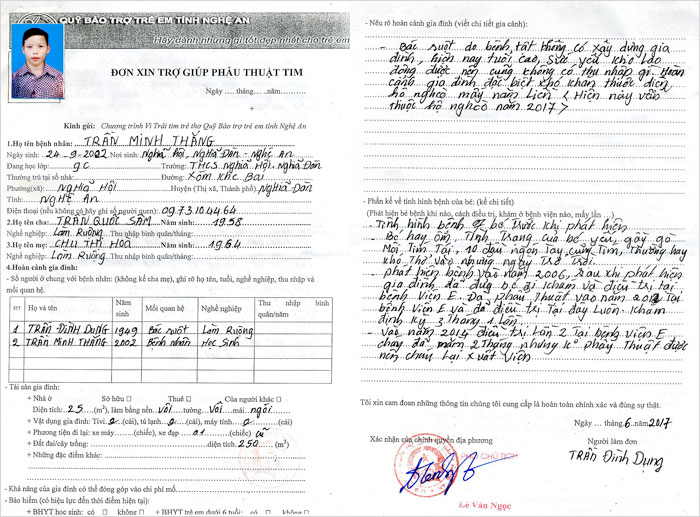 QUỸ BẢO TRỢ TRẺ EM TỈNH NGHỆ AN
Hãy dành những gì tốt đẹp nhất cho trẻ em
ĐƠN XIN TRỢ GIÚP PHẪU THUẬT TIM
Ngày .... tháng.... .năm..........
Kính gửi: Chương trình Vì Trái tim trẻ thơ Quỹ Bảo trợ trẻ em tỉnh Nghệ An
1.Họ tên bệnh nhân: TRẦN MINH THẮNG
Ngày sinh: 24-9-2002 Nơi sinh: Nghĩa Hội, Nghĩa Đàn - Nghệ An
Đang học lớp: 9C Trường: THCS Nghĩa Hội, Nghĩa Đàn
Thường trú tại số nhà: Đường: Xóm Khe Bai
Phường(xã): Nghĩa Hội Huyện (Thị xã, Thành phố) Nghĩa Đàn
Tỉnh: Nghệ An
Điện thoại (nếu không có hãy ghi số người quen): 0973104464
2.Họ tên cha: TRẦN QUỐC SÂM Năm sinh: 1958
Nghề nghiệp: Làm Ruộng Thu nhập bình quân/tháng:
3.Họ tên mẹ: CHU THỊ HOA Năm sinh: 1964
Nghề nghiệp: Làm Ruộng Thu nhập bình quân/tháng:
4.Hoàn cảnh gia đình:
- Số người ở chung với bệnh nhân: (không kể cha mẹ), ghi rõ họ tên, tuổi, nghề nghiệp, thu nhập và mối quan hệ.
STT Họ và tên Năm sinh Mối quan hệ Nghề nghiệp Thu nhập bình quân/năm
1 TRẦN ĐÌNH DỤNG 1949 Bác suốt Làm Ruộng
2 TRẦN MINH THẮNG 2002 Bệnh nhân Học Sinh
- Tài sản gia đình:
+ Nhà ở Sở hữu □ Thuê □ Của người khác □
Diện tích: 25 (m²), làm bằng nền vôi tường vôi mái ngói
+ Vật dụng gia đình: Tivi 0 (cái), tủ lạnh 0 (cái), máy tính 0 (cái)
+ Phương tiện đi lại: xe máy (chiếc), xe đạp 01 (chiếc) cũ
+ Đất đai/cây trồng: diện tích: 250 (m²).
+ Những đặc điểm khác:
- Khả năng của gia đình có thể đóng góp vào chi phí mổ
- Bảo hiểm (có hiệu lực đến thời điểm hiện tại):
+ BHYT học sinh: có □ không □ + BHYT trẻ em dưới 6 tuổi: có □ không □
- Nêu rõ hoàn cảnh gia đình (viết chi tiết gia cảnh):
- Bác suốt do bệnh tật không có xây dựng gia
đình, hiện nay tuổi cao, sức yếu khó lao
động được nên cũng không có thu nhập gì. Hoàn
cảnh gia đình đặc biệt khó khăn thuộc diện
hộ nghèo mấy năm liền < Hiện nay vẫn
thuộc hộ nghèo năm 2017>
- Phần kể về tình hình bệnh của bé: (kể chi tiết)
(Phát hiện bệnh khi nào, cách điều trị, khám ở bệnh viện nào, mấy lần ...)
- Tình hình bệnh của bé trước khi phát hiện
- Bé hay ốm, tình trạng của bé yếu, gầy gò
Môi, tím tái, 10 đầu ngón tay cũng tím, thường hay
khó thở vào những ngày trở trời.
- phát hiện bệnh vào năm 2006, sau khi phát hiện
gia đình đã đưa bé đi khám và điều trị tại
bệnh viện E. Đã phẫu thuật vào năm 2012 tại
bệnh viện E và đã điều trị tại đây luôn. Khám
định kỳ 3 tháng 1 lần
- vào năm 2014 điều trị lần 2 tại bệnh viện E
chạy đã nằm 2 tháng nhưng k° phẫu thuật được
nên cháu lại xuất viện
Tôi xin cam đoan những thông tin chúng tôi cung cấp là hoàn toàn chính xác và đúng sự thật.
Ngày .... tháng 6 năm 2017
Xác nhận của chính quyền địa phương Người làm đơn
PHÓ CHỦ TỊCH
TRẦN Đình Dụng
Lê Văn Ngọc